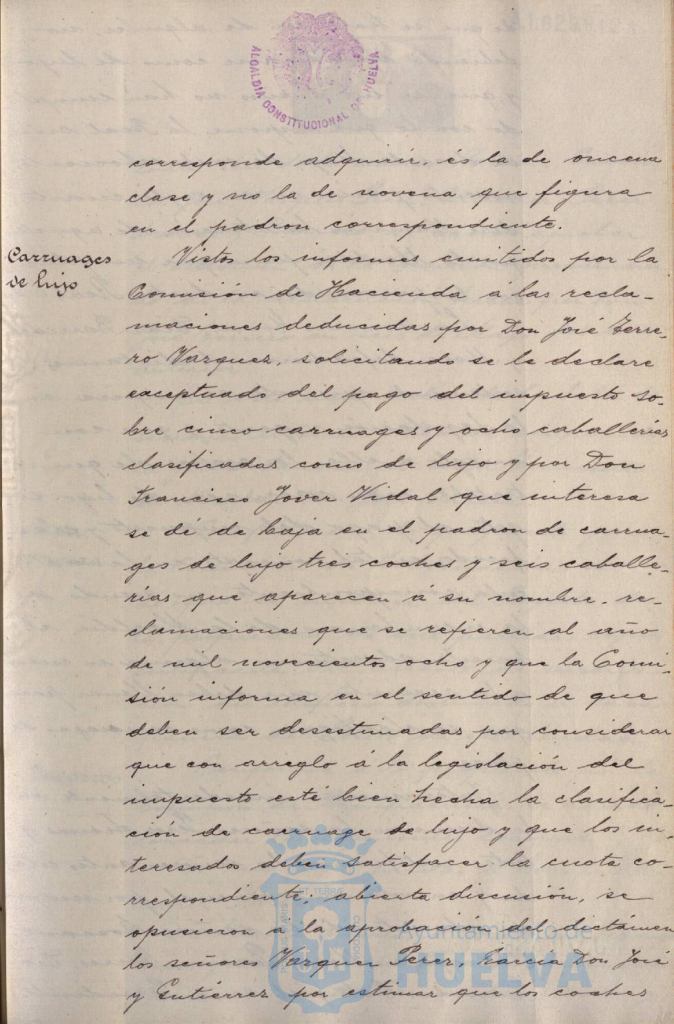 ALCALDIA CONSTITUCIONAL DE HUELVA
corresponde adquirir, és la de oncena
clase y no la de novena que figura
en el padron correspondiente.
Carruages
de lujo
Vistos los informes emitidos por la
Comisión de Hacienda á las recla-
maciones deducidas por Don José Ferre-
ro Vazquez, solicitando se le declare
exceptuado del pago del impuesto so-
bre cinco carruages y ocho caballerías
clasificadas como de lujo y por Don
Francisco Jover Vidal que interesa
se dé de baja en el padron de carrua-
ges de lujo tres coches y seis caballe-
rías que aparecen á su nombre, re-
clamaciones que se refieren al año
de mil novecientos ocho y que la Comi-
sión informa en el sentido de que
deben ser desestimadas por considerar
que con arreglo á la legislación del
impuesto esté bien hecha la clasifica-
ción de carruage de lujo y que los in-
teresados deben satisfacer la cuota co-
rrespondiente; abierta discusión, se
opusieron á la aprobación del dictámen
los señores Vazquez Perez, Garcia Don José
y Gutiérrez por estimar que los coches
Ayuntamiento de
HUELVA